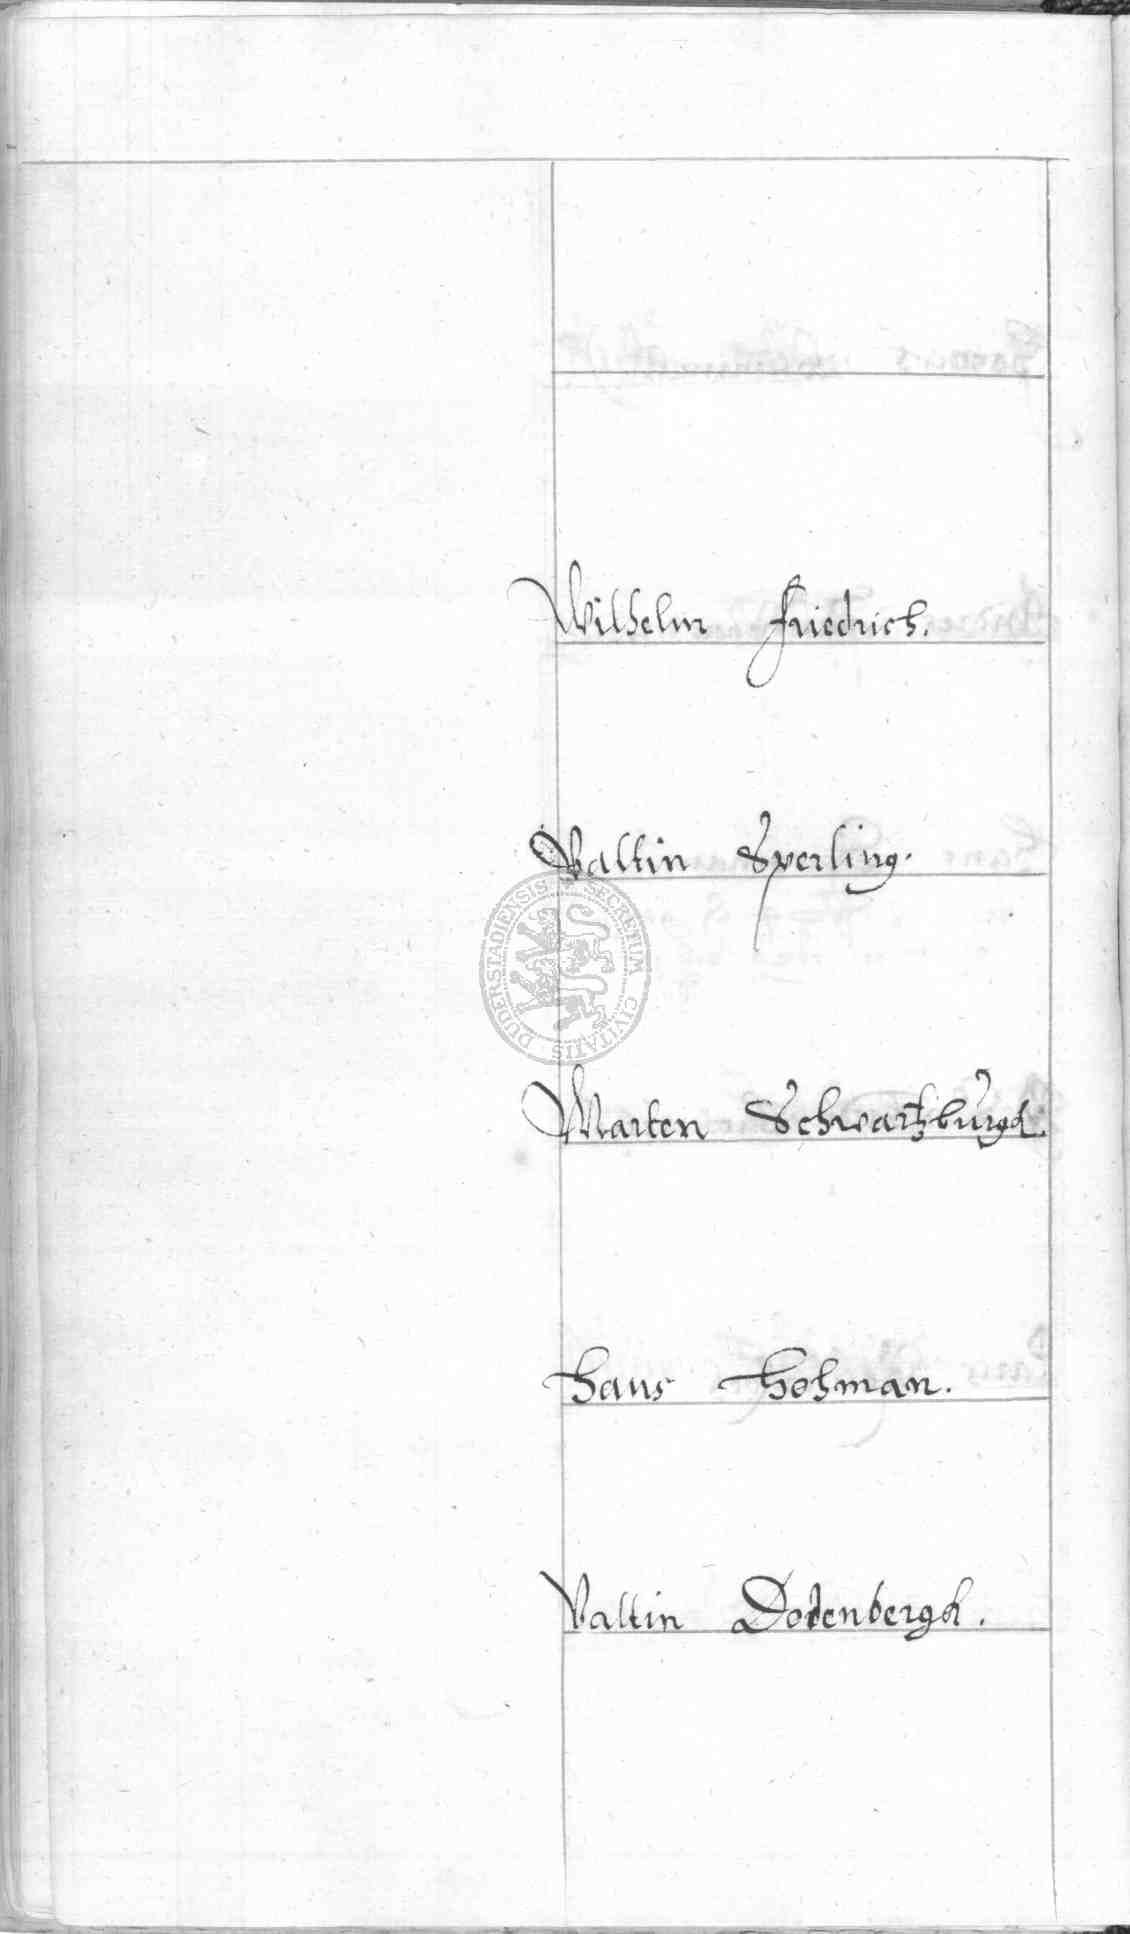 Wilhelm Friedrich.
Valtin Sperling.
SECRETUM CIVITATIS DUDERSTADIENSIS
Marten Schwartzburgk.
Hans Hohman.
Valtin Dodenbergk.